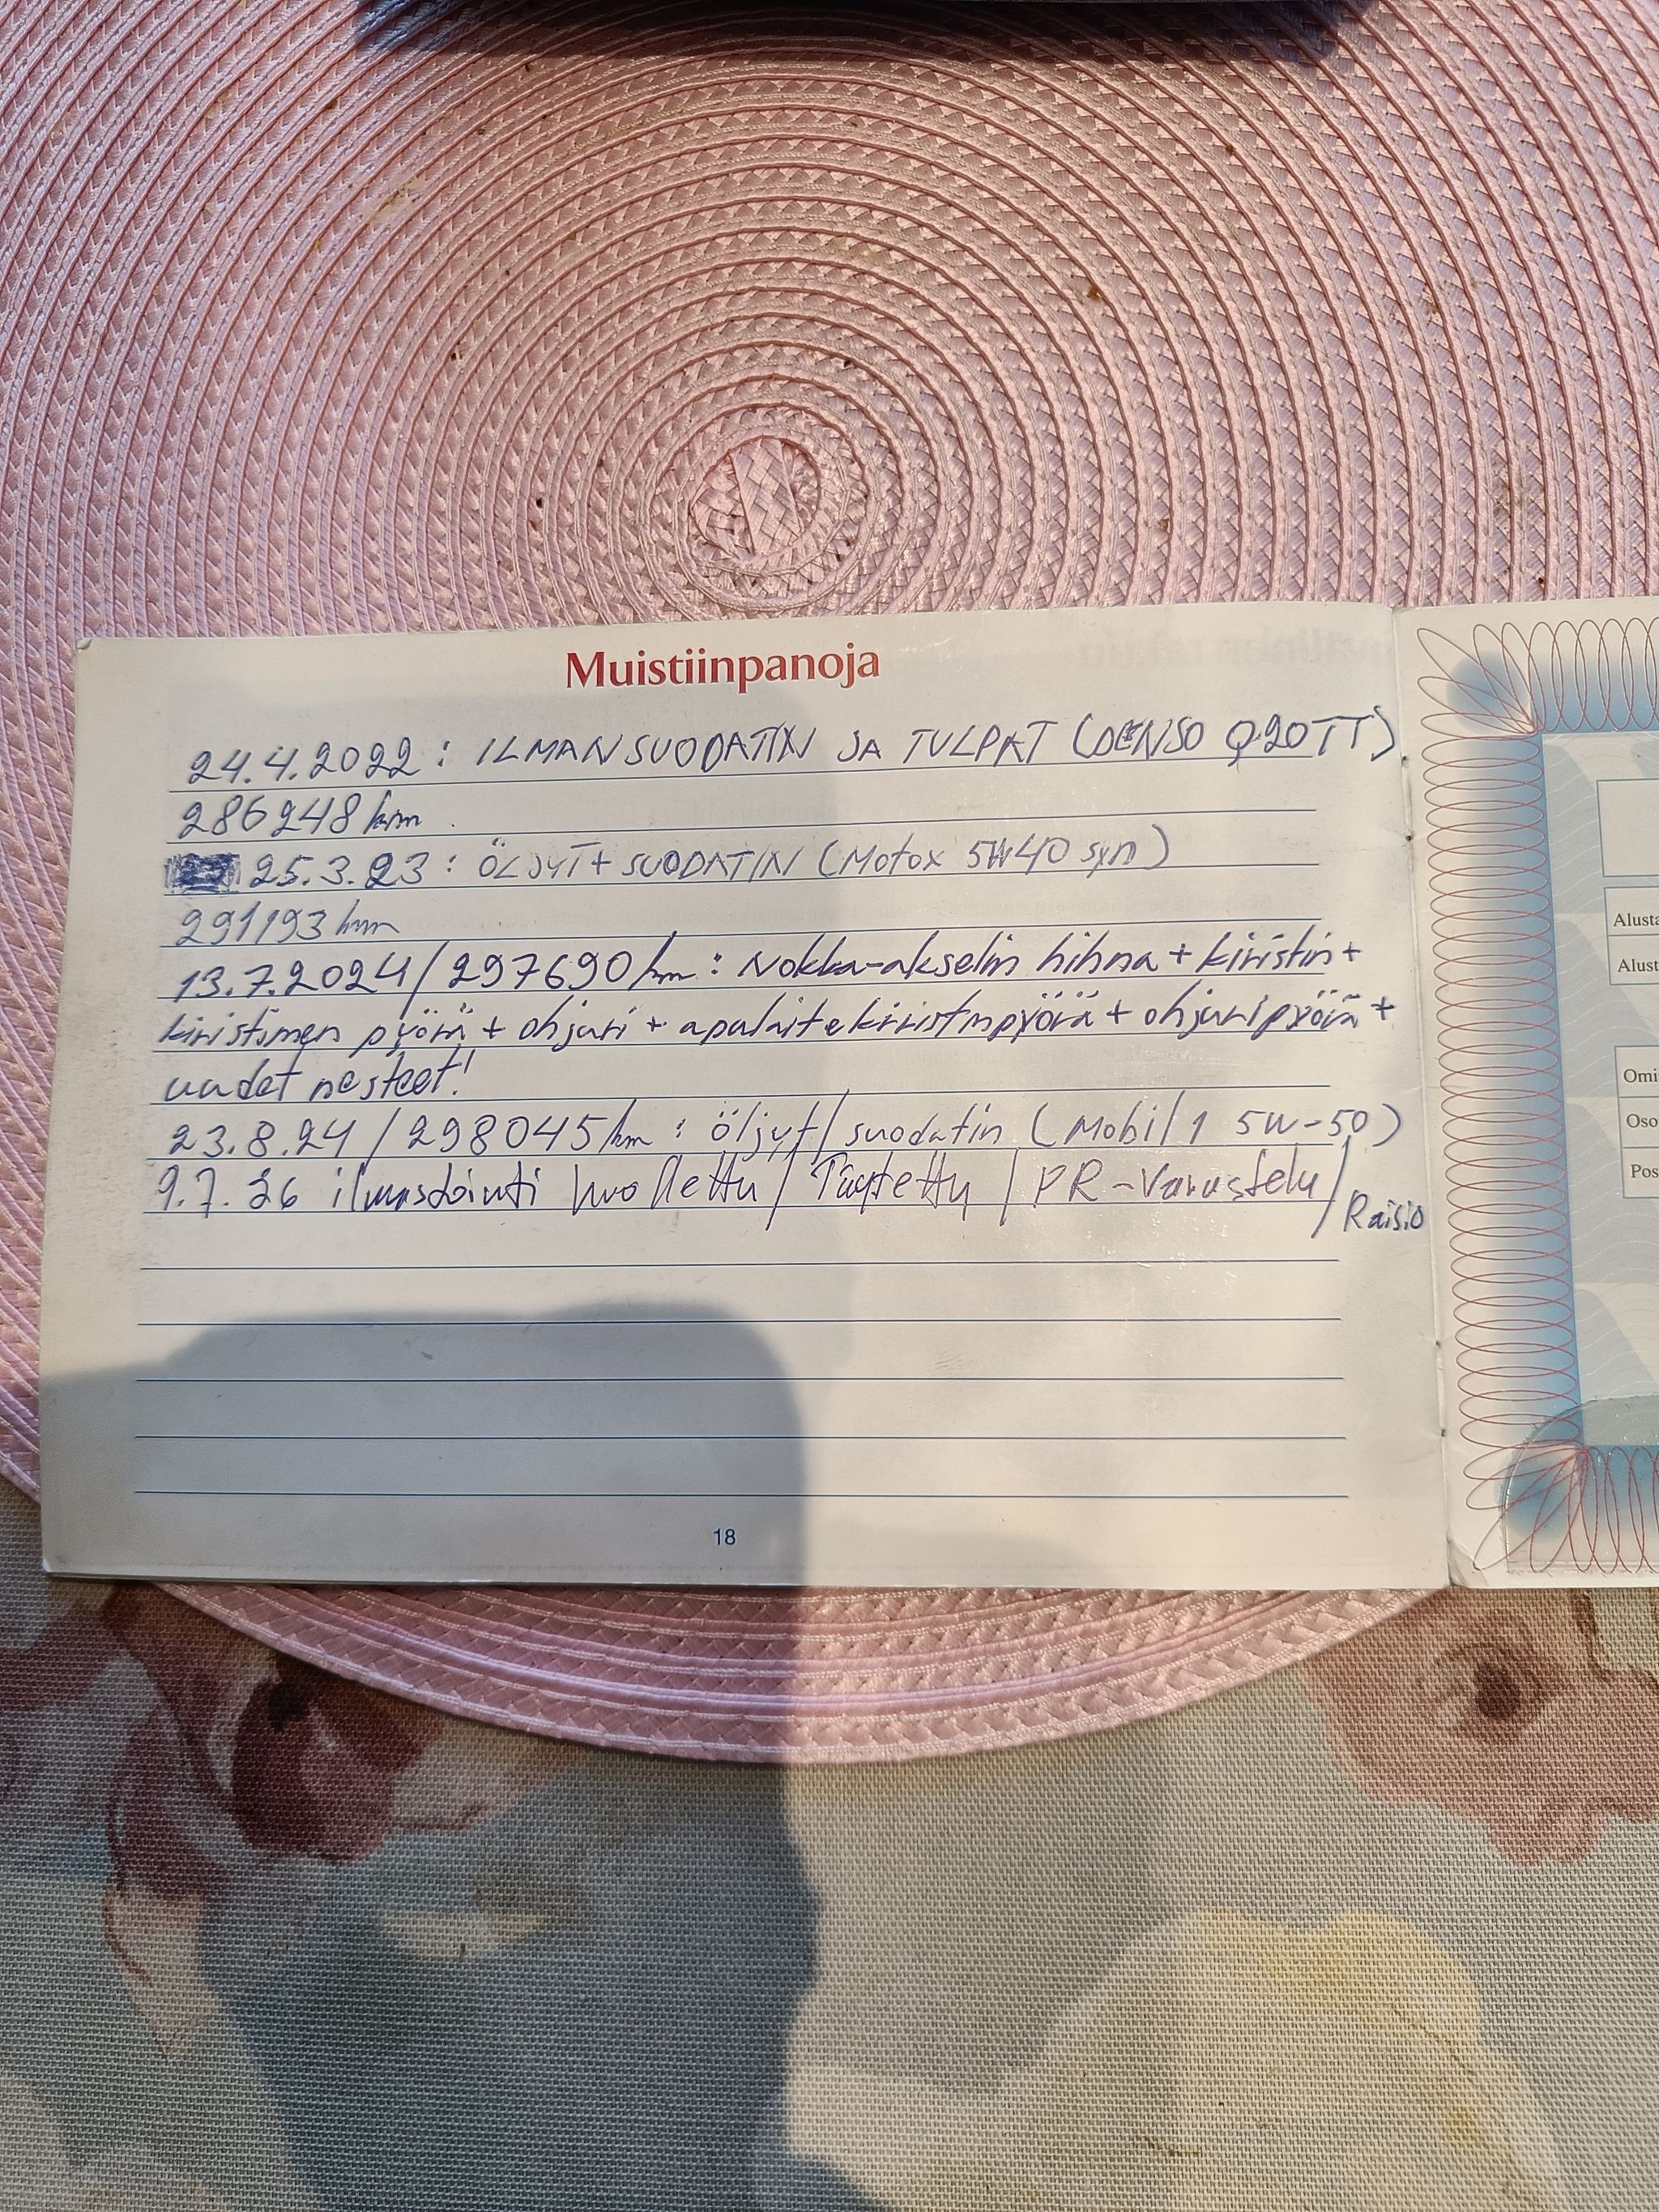 Muistiinpanoja
24.4.2022: ILMANSUODATIN JA TULPAT (DENSO Q20TT)
286248 km
25.3.23: ÖLJYT + SUODATIN (Motox 5W40 syn)
291193 km
13.7.2024/297690 km: Nokka-akselin hihna + kiristin +
kiristimen pyörä + ohjuri + apulaitekiristinpyörä + ohjuripyörä +
uudet nesteet!
23.8.24/298045 km: öljyt/suodatin (Mobil 1 5W-50)
9.7.26 ilmastointi huollettu/Täytetty/PR-Varustelu/
Raisio
18
Alusta
Alust
Omi
Oso
Pos